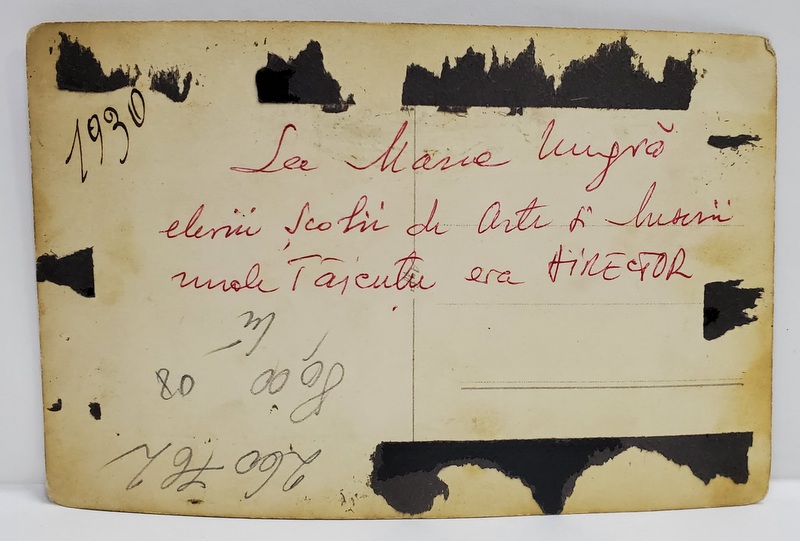 1930
La Marea Ungră
elevii Școlii de Arte și Meserii
unde Tăicuțu era DIRECTOR
lei
80 8000
260 762